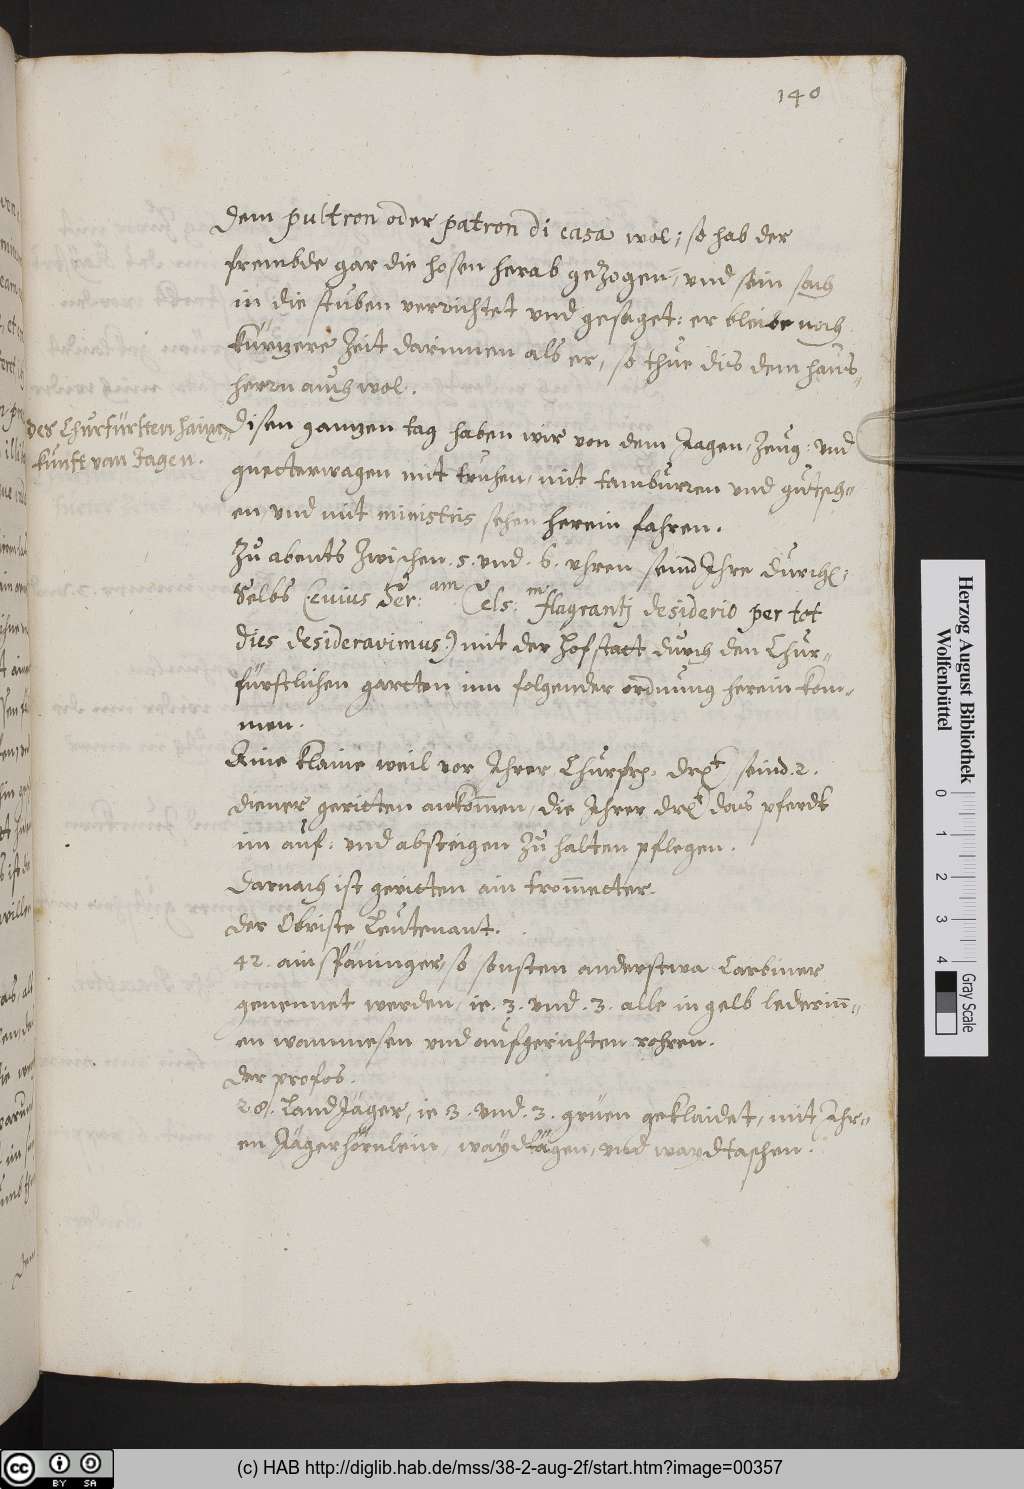 140
dem pultron oder patron di casa wol; so hab der
frembde gar die hosen herab gezogen, und sein sach
in die stuben verrichtet und gesaget: er bleibe noch
kürtzere Zeit darinnen als er, so thue dis dem haus-
herrn auch wol.
Des Churfürsten haim-
kunft vom Jagen.
Disen gantzen tag haben wir von dem Jagen, Zeug: und
guetterwagen mit truhen, mit tamburren und gutsch-
en, und mit ministris sehen herein fahren.
Zu abents Zwischen .5. und .6. uhren seind Ihre Durchl:
Selbs (cuius Ser:am Cels:m flagranti desiderio per tot
dies desideravimus) mit der Hofstatt durch den Chur-
fürstlichen gartten inn folgender ordnung herein kom-
men.
Aine klaine weil vor Ihrer Churfr. Drt seind .2.
diener geritten ankommen, die Ihrer Drt das pferdt
im auf: und absteigen zu halten pflegen.
Darnach ist geritten ain trommetter.
der Obriste Leutenant.
42. ainspäninger, so sonsten anderstwa Carbiner
genennet werden, ie .3. und .3. alle in gelb lederinn-
en wammesen und aufgerichten rohren.
der profos.
28. LandJäger, ie 3. und .3. grüen geklaidet, mit Ihr-
en Jägerhörnlein, waydtägen, und waydtaschen.
Herzog August Bibliothek
Wolfenbüttel
0 1 2 3 4
Gray Scale
cc BY SA
(c) HAB http://diglib.hab.de/mss/38-2-aug-2f/start.htm?image=00357